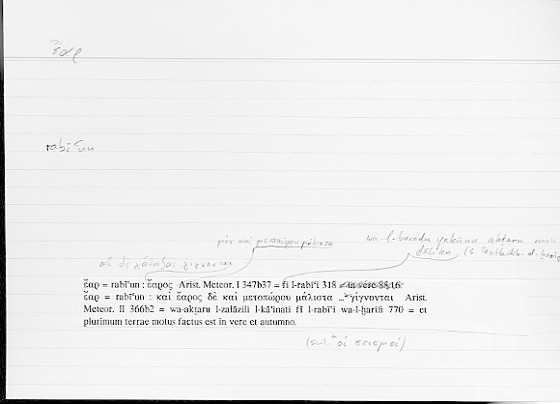 rabīʿun
μὲν καὶ μετοπώρου μάλιστα
wa-l-baradu yakūnu akṯaru
αἱ δὲ χάλαζαι γίγνονται
ḏālika
ἔαρ = rabīʿun : ἔαρος Arist. Meteor. I 347b37 = fī l-rabīʿi 318
ἔαρ = rabīʿun : καὶ ἔαρος δὲ καὶ μετοπώρου μάλιστα ... γίγνονται Arist.
Meteor. II 366b2 = wa-akṯaru l-zalāzili l-kāʾinati fī l-rabīʿi wa-l-ḫarīfi 770 = et
plurimum terrae motus factus est in vere et autumno.
οἱ σεισμοί)